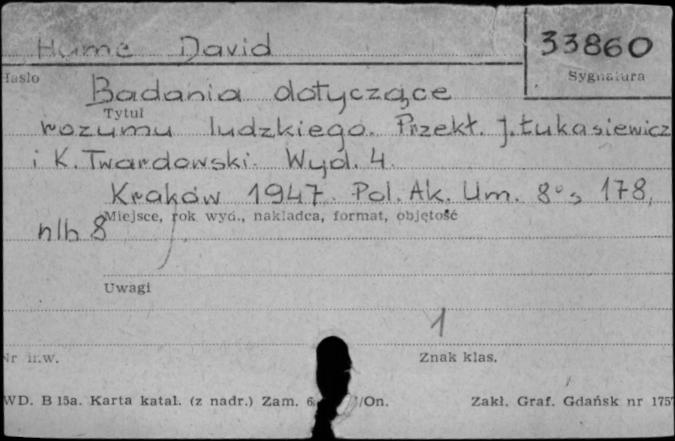 Hume David
33860
Hasło
Sygnatura
Badania dotyczące
Tytuł
rozumu ludzkiego. Przekł. J. Łukasiewicz
i K. Twardowski. Wyd. 4.
Kraków 1947. Pol. Ak. Um. 8° s 178,
Miejsce, rok wyd., nakładca, format, objętość
nlb 8
Uwagi
1
Nr inw.
Znak klas.
WD. B 15a. Karta katal. (z nadr.) Zam. /On.
Zakł. Graf. Gdańsk nr 175